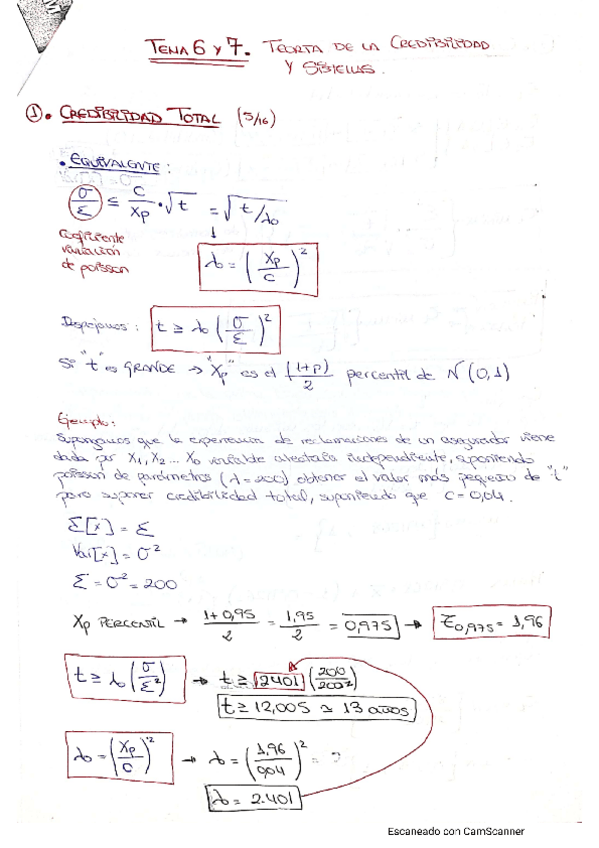 TEMA 6 y 7. TEORÍA DE LA CREDIBILIDAD
Y SISTEMAS.
①. CREDIBILIDAD TOTAL (5/16)
• EQUIVALENTE:
σ/Σ ≤ C/Xp · √t = √(t/λ₀)
Coeficiente
variación
de poisson
λ₀ = (Xp/C)²
Despejamos: t ≥ λ₀ (σ/Σ)²
Si "t" es GRANDE → "Xp" es el (1+p)/2 percentil de N(0,1)
Ejemplo:
Supongamos que la experiencia de reclamaciones de un asegurador viene
dada por X₁, X₂ ... X₀ variable aleatoria independiente, suponiendo
poisson de parámetros (λ=200) obtener el valor más pequeño de "t"
para suponer credibilidad total, suponiendo que C=0,04.
Σ[x] = Σ
Var[x] = σ²
Σ = σ² = 200
Xp PERCENTIL → (1+0,95)/2 = 1,95/2 = 0,975 → Z0,975 = 1,96
t ≥ λ₀ (σ/Σ²) → t ≥ 2401 (200/200²)
t ≥ 12,005 ≃ 13 años
λ₀ = (Xp/C)² → λ₀ = (1,96/0,04)² =
λ₀ = 2.401
Escaneado con CamScanner